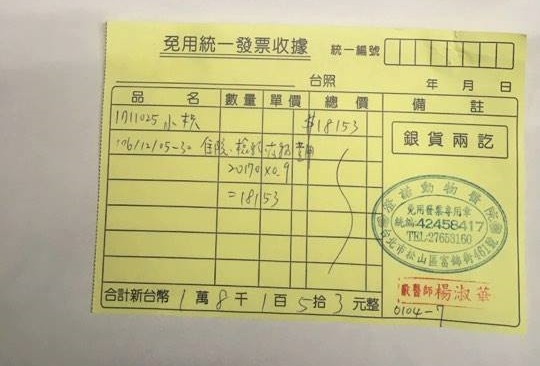 免用統一發票收據 統一編號
台照 年 月 日
品名 數量 單價 總價 備註
1711025 小秋 $18153
106/12/05-30 住院、檢驗 費用
20170×0.9
=18153
銀貨兩訖
動物醫院
免用發票專用章
統編:42458417
TEL:27653160
台北市松山區富錦街461號
獸醫師 楊淑華
0104-7
合計新台幣 1萬8千1百5拾3元整